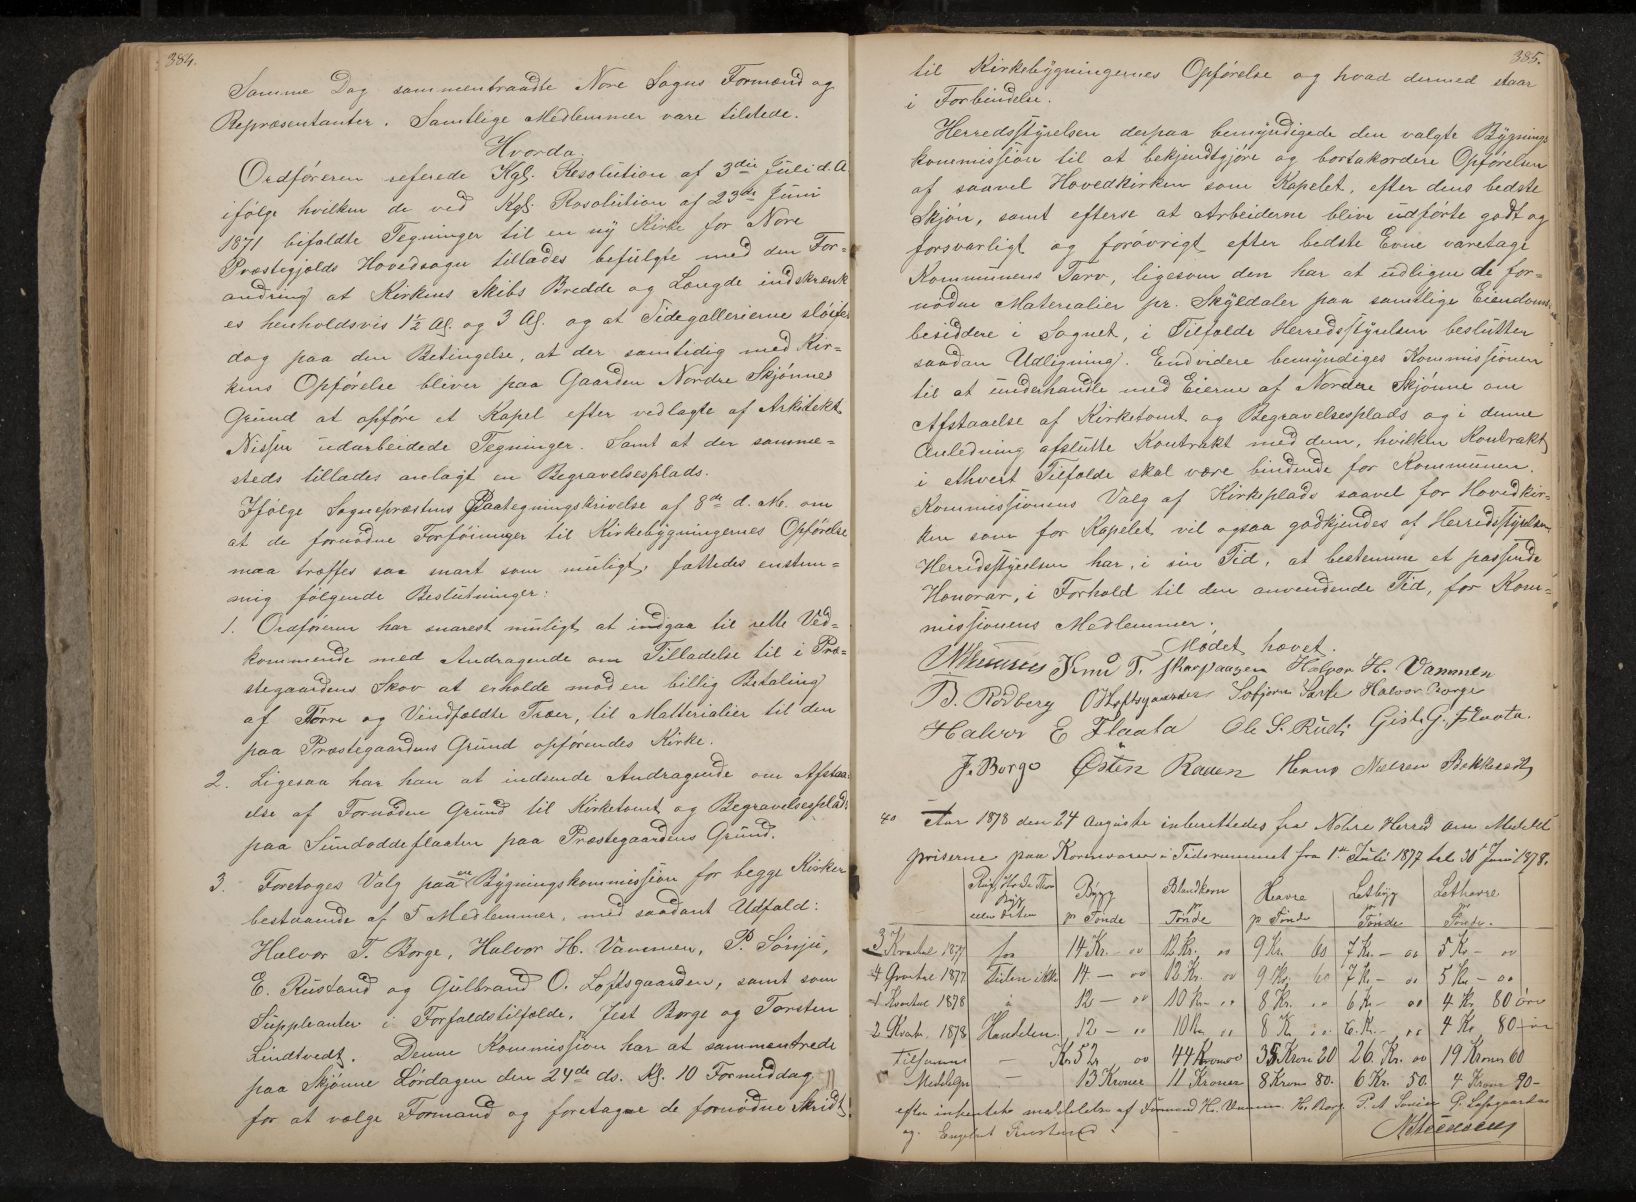 384.
Samme Dag sammentraadte Nore Sogns Formænd og
Repræsentanter. Samtlige Medlemmer vare tilstede.
Hvorda:
Ordføreren referede Kgl. Resolution af 3die Juli d. A.
ifølge hvilken de ved Kgl. Resolution af 23de Juni
1871 bifaldte Tegninger til en ny Kirke for Nore
Præstegjelds Hovedsogn tillades befulgte med den For-
andring at Kirkens Skibs Bredde og Længde indskrænk
es henholdsvis 1½ Al. og 3 Al. og at Sidegallerierne sløifes
dog paa den Betingelse, at der samtidig med Kir-
kens Opførelse bliver paa Gaarden Nordre Skjønnes
Grund at opføre et Kapel efter vedlagte af Arkitekt
Nissen udarbeidede Tegninger. Samt at der samme-
steds tillades anlagt en Begravelsesplads.
Ifølge Sognepræstens Paategningskrivelse af 8de d. M. om
at de fornødne Forføininger til Kirkebygningernes Opførelse
maa træffes saa snart som muligt, fattedes enstem-
mig følgende Beslutninger:
1. Ordføreren har snarest muligt at indgaa til rette Ved-
kommende med Andragende om Tilladelse til i Præ-
stegaardens Skov at erholde mod en billig Betaling
af Tørre og Vindfældte Træer, til Matterialier til den
paa Præstegaardens Grund opførendes Kirke.
2. Ligesaa har han at indsende Andragende om Afstaa-
else af Fornøden Grund til Kirketomt og Begravelsesplads
paa Sundoddeflaaten paa Præstegaardens Grund.
3. Foretoges Valg paa en Bygningskommission for begge Kirker
bestaaende af 5 Medlemmer, med saadant Udfald:
Halvor T. Borge, Halvor H. Vammen, P. Sønju,
E. Rustand og Gulbrand O. Løftsgaarden, samt som
Suppleanter i Forfaldstilfælde, Jest Borge og Torsten
Lindtvedt. Denne Kommission har at sammentrede
paa Skjønne Lørdagen den 24de ds. Kl. 10 Formiddag
for at vælge Formand og foretagne de fornødne Skridt
385.
til Kirkebygningernes Opførelse og hvad dermed staar
i Forbindelse.
Herredsstyrelsen derpaa bemyndigede den valgte Bygnings
kommission til at bekjendtgjøre og bortakordere Opførelsen
af saavel Hovedkirken som Kapelet, efter dens bedste
Skjøn, samt efterse at Arbeiderne blive udførte godt og
forsvarligt og forøvrigt efter bedste Evne varetage
Kommunens Tarv, ligesom den har at udligne de for-
nødne Materialier pr. Skyldaler paa samtlige Eiendoms-
besiddere i Sognet, i Tilfælde Herredsstyrelsen beslutter
saadan Udligning. Endvidere bemyndiges Kommissionen
til at underhandle med Eierne af Nordre Skjønne om
Afstaaelse af Kirketomt og Begravelsesplads og i denne
Anledning afslutte Kontrakt med dem, hvilken Kontrakt
i ethvert Tilfælde skal være bindende for Kommunen.
Kommissionens Valg af Kirkeplads saavel for Hovedkir-
ken som for Kapelet vil ogsaa godkjendes af Herredsstyrelsen
Herredsstyrelsen har, i sin Tid, at bestemme et passende
Honorar, i Forhold til den anvendende Tid, for Kom-
missionens Medlemmer.
Mødet hævet.
Knud T. Halvor H. Vammen
B. Rodberg O Løftsgaarden Halvor Borge
Halvor E Flaata Ole S. Rudi Gisl. G. Flaata.
J. Borge Østen Raaen
Aar 1878 den 24 Auguste inberettedes fra Nohre Herred om Middel
priserne paa Kornvarer i Tidsrummet fra 1te Juli 1877 til 30 Juni 1878.
Rug, Byg eller Erten | Bygg p Tønde | Blandkorn pr Tønde | Havre p Tønde | Letbyg pr Tønde | Lethavre pr Tønde.
3 Kvartal 1877 | faa | 14 Kr. 00 | 12 Kr. 00 | 9 Kr. 60 | 7 Kr. - 00 | 5 Kr - 00
4 Qvartal 1877 | Tiden ikke | 14 - 00 | 12 Kr. 00 | 9 Kr. 60 | 7 Kr. - 00 | 5 Kr - 00
1 Kvartal 1878 | i | 12 - 00 | 10 Kr. 00 | 8 Kr. 00 | 6 Kr - 00 | 4 Kr. 80 øre
2 Kvart. 1878 | Handelen | 12 - 00 | 10 Kr 00 | 8 Kr 00 | 6 Kr. - 00 | 4 Kr 80 ør
Tilsamms | - | Kr. 52 00 | 44 Kroner | 35 Kron 20 | 26. Kr. 00 | 19 Kroner 60
Middelpr | - | 13 Kroner | 11 Kroner | 8 Kron 80. | 6 Kr. 50. | 4 Krone 90-
efter inhentede meddelelse af Formand H. Vammen H. Borg
og